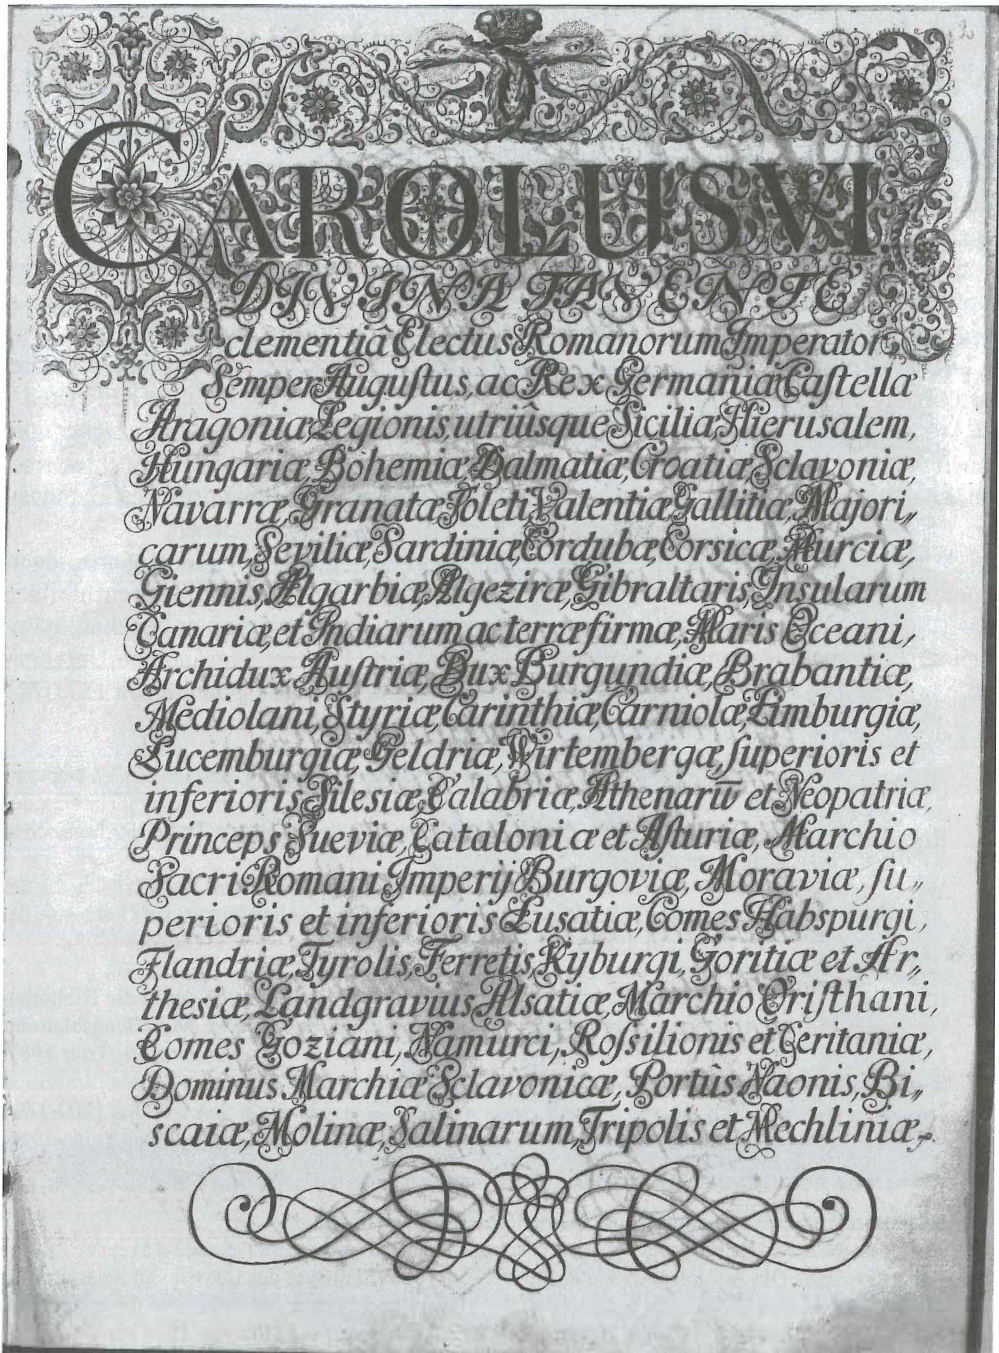 CAROLUS VI
DIVINA FAVENTE
clementiâ Electus Romanorum Imperator,
Semper Auguſtus, ac Rex Germaniæ Caſtellæ
Aragoniæ, Legionis, utriûsque Siciliæ, Hierusalem,
Hungariæ, Bohemiæ, Dalmatiæ, Croatiæ, Sclavoniæ,
Navarræ, Granatæ, Toleti, Valentiæ, Gallitiæ, Majori„
carum, Seviliæ, Sardiniæ, Cordubæ, Corsicæ, Murciæ,
Giennis, Algarbiæ, Algeziræ, Gibraltaris, Insularum
Canariæ, et Indiarum ac terræ firmæ, Maris Oceani,
Archidux Auſtriæ, Dux Burgundiæ, Brabantiæ,
Mediolani, Styriæ, Carinthiæ, Carniolæ, Limburgiæ,
Lucemburgiæ, Geldriæ, Wirtembergæ, ſuperioris et
inferioris Silesiæ, Calabriæ, Athenarū et Neopatriæ,
Princeps Sueviæ, Cataloniæ et Aſturiæ, Marchio
Sacri Romani Imperij Burgoviæ, Moraviæ, ſu„
perioris et inferioris Lusatiæ, Comes Habspurgi,
Flandriæ, Tyrolis, Ferretis, Kyburgi, Goritiæ et Ar„
thesiæ, Landgravius Alsatiæ, Marchio Oriſthani,
Comes Goziani, Namurci, Roſsilionis et Ceritaniæ,
Dominus Marchiæ Sclavonicæ, Portùs Naonis, Bi„
scaiæ, Molinæ, Salinarum, Tripolis et Mechliniæ,